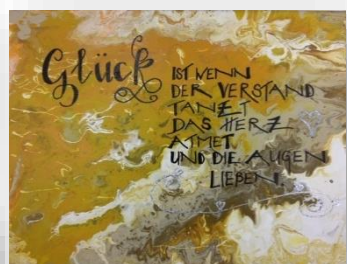 Glück
IST WENN
DER VERSTAND
TANZT
DAS HERZ
ATMET
UND DIE AUGEN
LIEBEN.